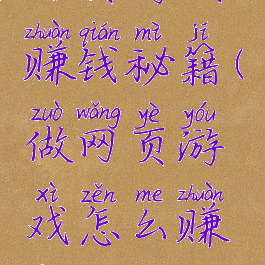 zhuàn qián mì jí
赚钱秘籍(
zuò wǎng yè yóu
做网页游
xì zěn me zhuàn
戏怎么赚